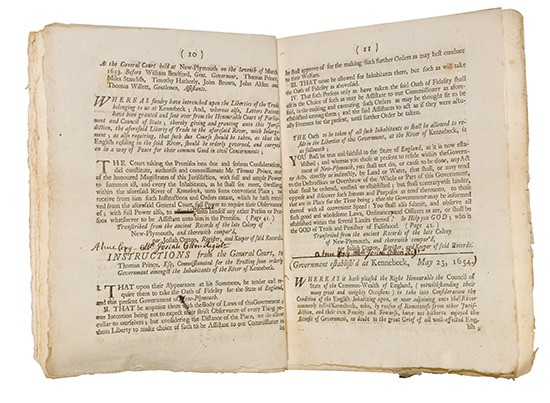 ( 10 )
At the General Court held at New-Plymouth on the Seventh of March
1653. Before William Bradford, Gent. Governour, Thomas Prince,
Miles Standish, Timothy Hatherly, John Brown, John Alden and
Thomas Willett, Gentlemen, Assistants.
WHEREAS sundry have intrenched upon the Liberties of the Trade
belonging to us at Kennebeck; And, whereas also, Letters Patents
have been granted and sent over from the Honourable Court of Parlia-
ment and Council of State; thereby giving and granting unto this Juris-
diction, the aforesaid Liberty of Trade in the aforesaid River, with Enlarge-
ment; as also requiring, that such due Course should be taken, as that the
English residing in the said River, should be orderly governed, and carryed
on in a way of Peace for their common Good in civil Concernments;
THE Court taking the Premises into due and serious Consideration,
did constitute, authorize and commissionate Mr. Thomas Prince, one
of the honoured Magistrates of this Jurisdiction, with full and ample Power
to summon all, and every the Inhabitants, as he shall see meet, dwelling
within the aforesaid River of Kennebeck, unto some convenient Place; to
receive from him such Instructions and Orders extant, which he hath recei-
ved from the aforesaid General Court, full Power to require their Observance
of; with full Power also, to unto himself any other Person or Per-
sons whatsoever to be Assistant unto him in the Premises. [Page 41.]
Transcribed from the ancient Records of the late Colony
of New-Plymouth, and therewith compar'd,
Per Josiah Cotton, Register, and Keeper of said Records.
A true Copy
INSTRUCTIONS from the General Court, to
Thomas Prince, Esq; Commissionated for the settling some orderly
Government amongst the Inhabitants of the River of Kennebeck.
I. THAT upon their Appearance at his Summons, he tender and re-
quire them to take the Oath of Fidelity for the State of England,
and this present Government of New-Plymouth.
II. THAT he acquaint them with the Body of Laws of this Government;
our Intention being not to expect their strict Observance of every Thing pe-
culiar to ourselves; but considering the Distance of the Place, we do allow
them Liberty to make choice of such to be Assistant to our Commissioner as
( 11 )
he shall approve of for the making such further Orders as may best conduce
to their Welfare.
III. THAT none be allowed for Inhabitants there, but such as will take
the Oath of Fidelity as aforesaid.
IV. That such Persons only as have taken the said Oath of Fidelity shall
act in the Choice of such as may be Assistant to our Commissioner as afore-
said, in the making and executing such Orders as may be thought fit to be
established among them; and the said Assistants to act as if they were actu-
ally Freemen for the present, until further Order be taken.
THE Oath to be taken of all such Inhabitants as shall be allowed to re-
side in the Liberties of this Government, at the River of Kennebeck, is
as followeth:
YOU shall be true and faithful to the State of England, as it is now esta-
blished; and whereas you chuse at present to reside within the Govern-
ment of New-Plymouth, you shall not do, or cause to be done, any Act
or Acts, directly or indirectly, by Land or Water, that shall, or may tend
to the Destruction or Overthrow of the Whole or Part of this Government,
that shall be orderly, erected or established; but shall contrarywise hinder,
oppose and discover such Intents and Purposes as tend thereunto, to those
that are in Place for the Time being; that the Government may be informed
thereof with all convenient Speed: You shall also submit, and observe all
such good and wholesome Laws, Ordinances and Officers as are, or shall be
established within the several Limits thereof. So Help you GOD; who is
the GOD of Truth and Punisher of Falshood. [Page 42.]
Transcribed from the ancient Records of the late Colony
of New-Plymouth, and therewith compar'd,
Per Josiah Cotton, Register, and Keeper of said Records.
a true Copy
(Government establish'd at Kennebeck, May 23, 1654.)
WHEREAS it hath pleased the Right Honourable the Council of
State of the Common-Wealth of England, (notwithstanding their
many great and weighty Occasions) to take into Consideration the
Condition of the English Inhabiting upon, or near adjoining unto the River
commonly called Kennebeck, who, by reason of Remoteness from other Jurisdic-
tion, and their own Paucity and Fewness, have not hitherto enjoyed the
Benefit of Government, no doubt to the great Grief of all well-affected Eng-
lish